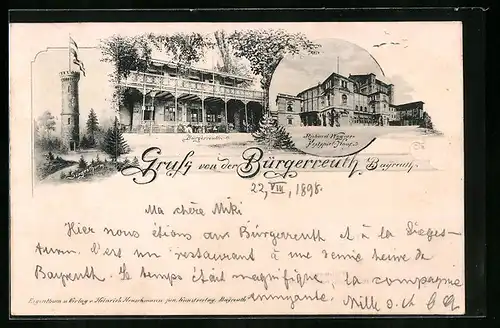 Bürgerreuth
Richard Wagner
Festspiel Haus
Gruß von der Bürgerreuth b/Bayreuth
22/VII, 1898.
Ma chère Miki
Hier nous étions au Bürgerreuth et à la Sieges-
turm. C'est un restaurant à une demie heure de
Bayreuth. Le temps était magnifique, la compagne
ennuyante. Mille
Eigenthum u. Verlag v. Heinrich Heuschmann jun. Kunstverlag, Bayreuth.